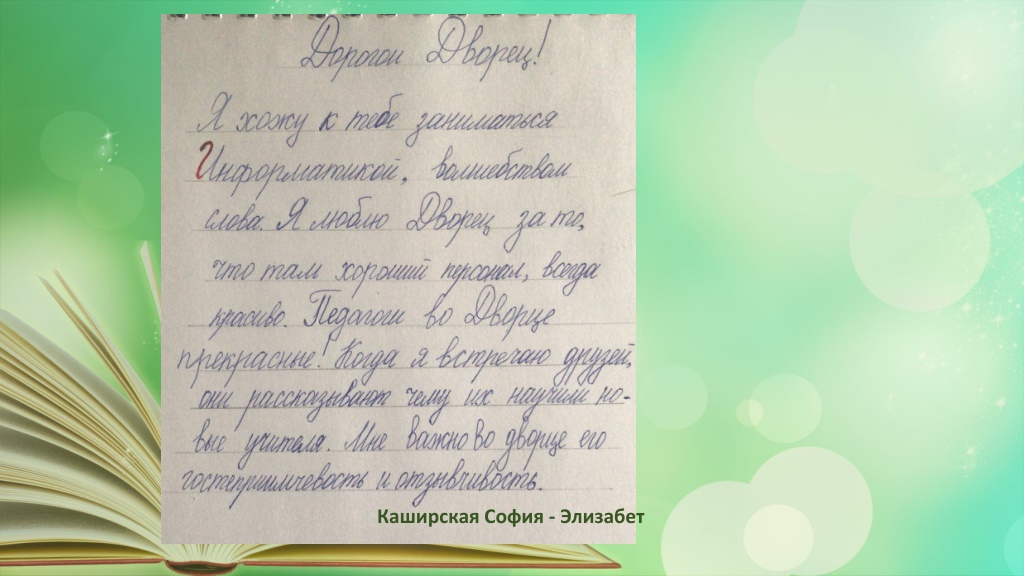 Дорогой Дворец!
Я хожу к тебе заниматься
Информатикой, волшебством
слова. Я люблю Дворец за то,
что там хороший персонал, всегда
красиво. Педагоги во Дворце
прекрасные! Когда я встречаю друзей,
они рассказывают чему их научили но-
вые учителя. Мне важно во дворце его
гостеприимчевость и отзывчивость.
Каширская София - Элизабет